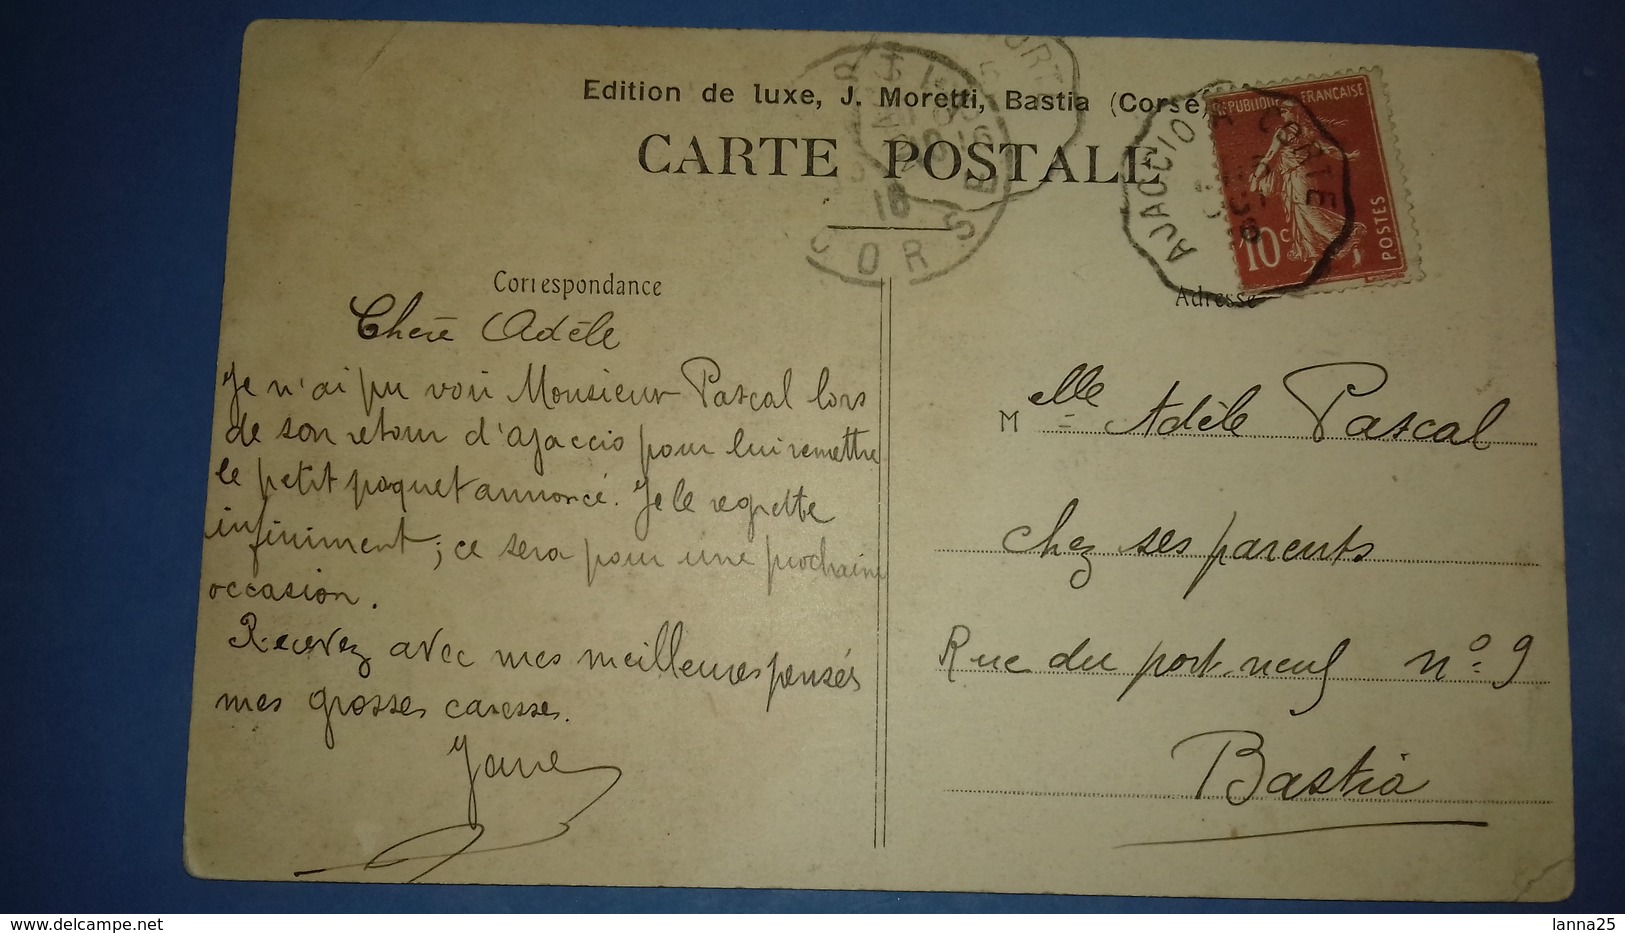 Edition de luxe, J. Moretti, Bastia (Corse)
CARTE POSTALE
REPUBLIQUE FRANCAISE
10c
POSTES
AJACCIO A CORTE
CORSE
18
Correspondance
Adresse
Chère Adèle
Je n'ai pu voir Monsieur Pascal lors
de son retour d'ajaccio pour lui remettre
le petit paquet annoncé. Je le regrette
infiniment ; ce sera pour une prochaine
occasion.
Recevez avec mes meilleures pensées
mes grosses caresses.
Jane
Melle Adèle Pascal
chez ses parents
Rue du port-neuf nº 9
Bastia
delcampe.net
lanna25